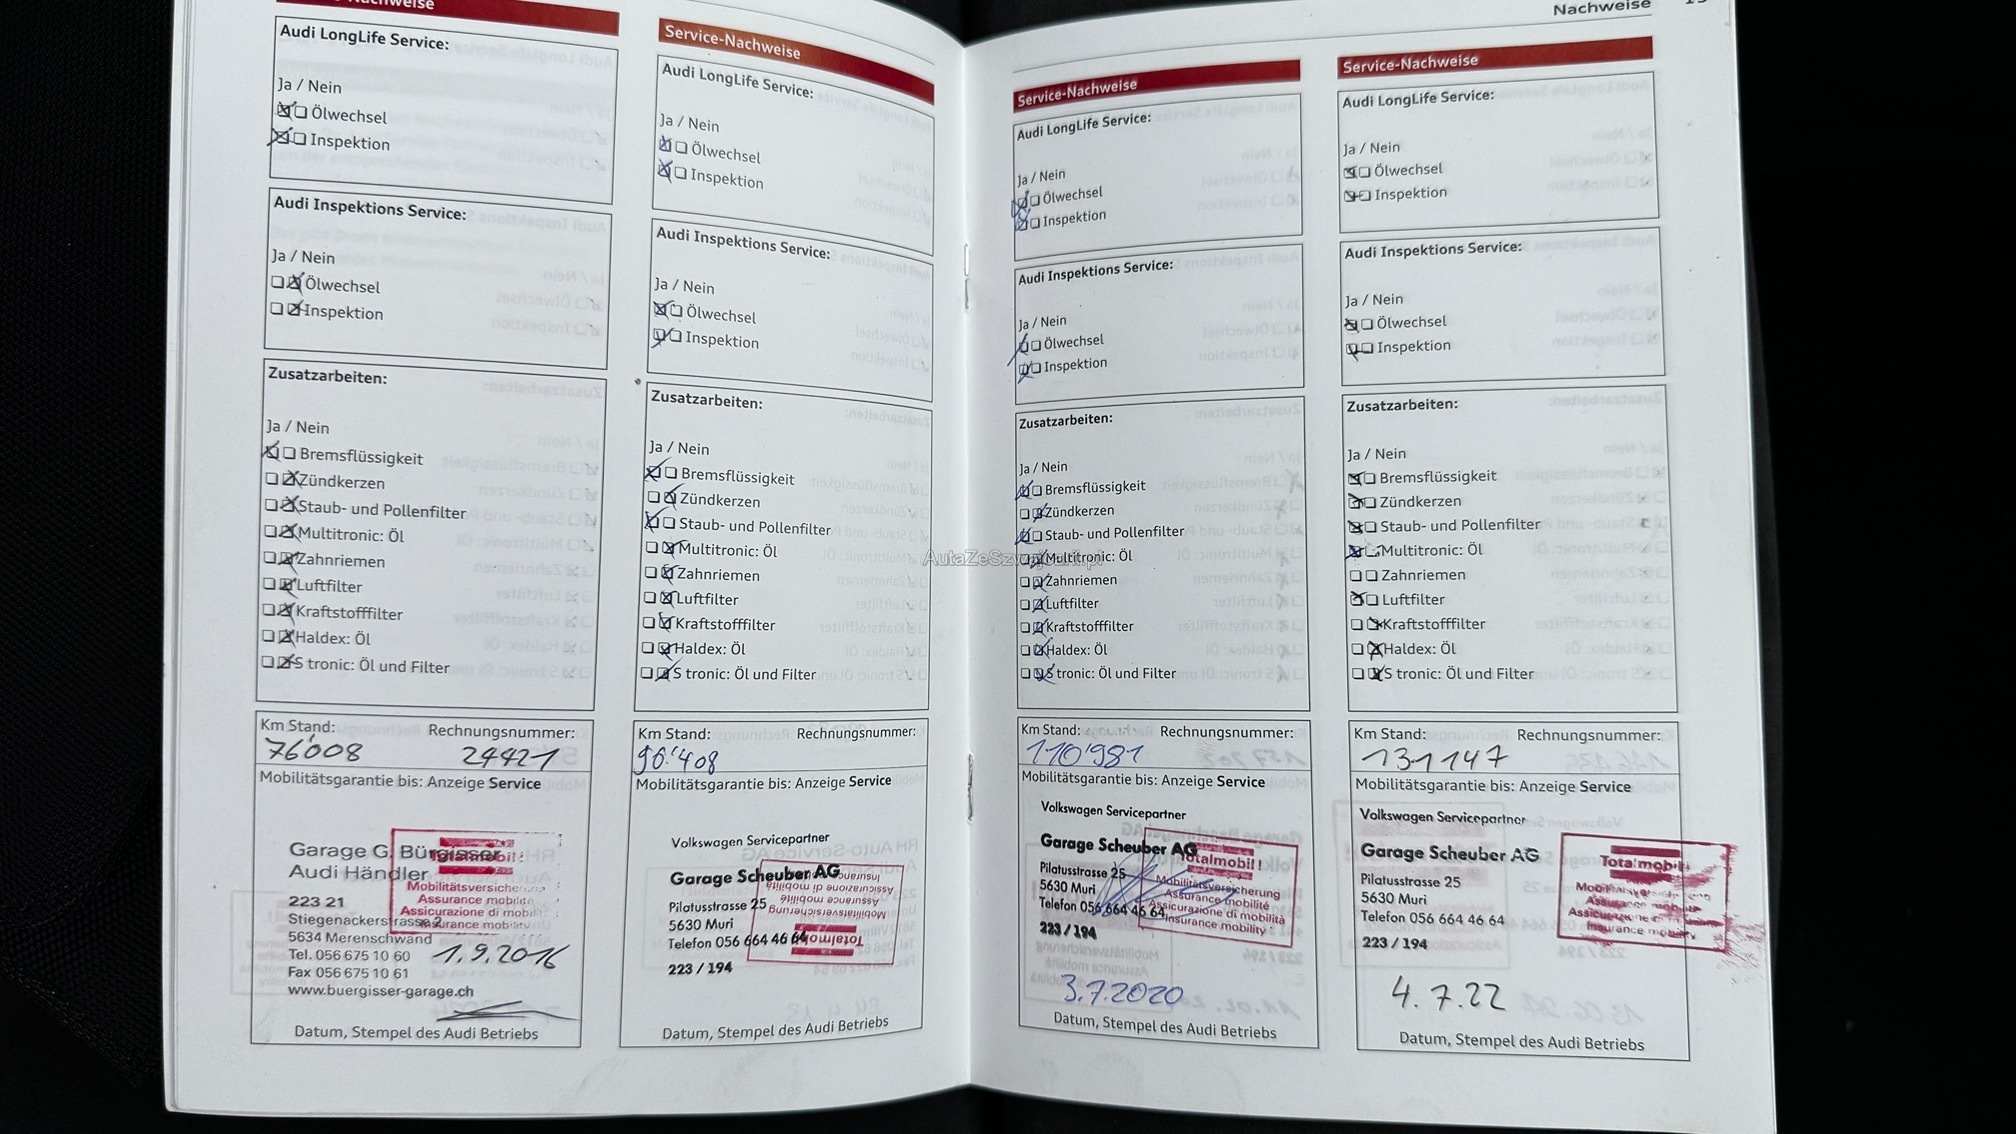 Nachweise
Audi LongLife Service:
Ja / Nein
Ölwechsel
Inspektion
Audi Inspektions Service:
Ja / Nein
Ölwechsel
Inspektion
Zusatzarbeiten:
Ja / Nein
Bremsflüssigkeit
Zündkerzen
Staub- und Pollenfilter
Multitronic: Öl
Zahnriemen
Luftfilter
Kraftstofffilter
Haldex: Öl
S tronic: Öl und Filter
Km Stand: Rechnungsnummer:
76'008 24421
Mobilitätsgarantie bis: Anzeige Service
Garage G. Bürgisser
Audi Händler
223 21
Stiegenackerstrasse 2
5634 Merenschwand
Tel. 056 675 10 60
Fax 056 675 10 61
www.buergisser-garage.ch
Totalmobil!
Mobilitätsversicherung
Assurance mobilité
Assicurazione di mobilità
Insurance mobility
1.9.2016
Datum, Stempel des Audi Betriebs
Service-Nachweise
Audi LongLife Service:
Ja / Nein
Ölwechsel
Inspektion
Audi Inspektions Service:
Ja / Nein
Ölwechsel
Inspektion
Zusatzarbeiten:
Ja / Nein
Bremsflüssigkeit
Zündkerzen
Staub- und Pollenfilter
Multitronic: Öl
Zahnriemen
Luftfilter
Kraftstofffilter
Haldex: Öl
S tronic: Öl und Filter
Km Stand: Rechnungsnummer:
90'408
Mobilitätsgarantie bis: Anzeige Service
Volkswagen Servicepartner
Garage Scheuber AG
Pilatusstrasse 25
5630 Muri
Telefon 056 664 46 64
223 / 194
Totalmobil!
Mobilitätsversicherung
Assurance mobilité
Assicurazione di mobilità
Insurance mobility
Datum, Stempel des Audi Betriebs
Nachweise
Service-Nachweise
Audi LongLife Service:
Ja / Nein
Ölwechsel
Inspektion
Audi Inspektions Service:
Ja / Nein
Ölwechsel
Inspektion
Zusatzarbeiten:
Ja / Nein
Bremsflüssigkeit
Zündkerzen
Staub- und Pollenfilter
Multitronic: Öl
Zahnriemen
Luftfilter
Kraftstofffilter
Haldex: Öl
S tronic: Öl und Filter
Km Stand:
110'981
Mobilitätsgarantie bis: Anzeige Service
Volkswagen Servicepartner
Garage Scheuber AG
Pilatusstrasse 25
5630 Muri
Telefon 056 664 46 64
223 / 194
Totalmobil!
Mobilitätsversicherung
Assurance mobilité
Assicurazione di mobilità
Insurance mobility
3.7.2020
Datum, Stempel des Audi Betriebs
Service-Nachweise
Audi LongLife Service:
Ja / Nein
Ölwechsel
Inspektion
Audi Inspektions Service:
Ja / Nein
Ölwechsel
Inspektion
Zusatzarbeiten:
Ja / Nein
Bremsflüssigkeit
Zündkerzen
Staub- und Pollenfilter
Multitronic: Öl
Zahnriemen
Luftfilter
Kraftstofffilter
Haldex: Öl
S tronic: Öl und Filter
Km Stand: Rechnungsnummer:
131147
Mobilitätsgarantie bis: Anzeige Service
Volkswagen Servicepartner
Garage Scheuber AG
Pilatusstrasse 25
5630 Muri
Telefon 056 664 46 64
223 / 194
Totalmobil!
Mobilitätsversicherung
Assurance mobilité
Assicurazione di mobilità
Insurance mobility
4.7.22
Datum, Stempel des Audi Betriebs